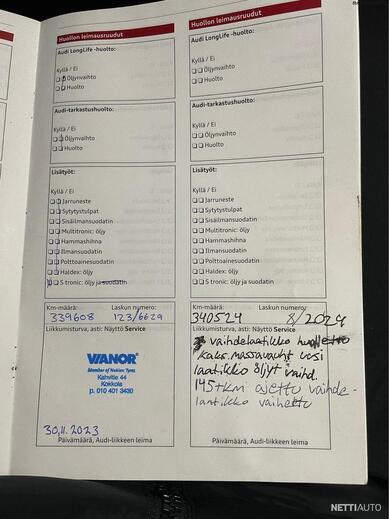 Huollon leimausruudut
Audi LongLife -huolto:
Kyllä / Ei
Öljynvaihto
Huolto
Audi-tarkastushuolto:
Kyllä / Ei
Öljynvaihto
Huolto
Lisätyöt:
Kyllä / Ei
Jarruneste
Sytytystulpat
Sisäilmansuodatin
Multitronic: öljy
Hammashihna
Ilmansuodatin
Polttoainesuodatin
Haldex: öljy
S tronic: öljy ja suodatin
Km-määrä:
Laskun numero:
339608
123/6629
Liikkumisturva, asti: Näyttö Service
VIANOR
Member of Nokian Tyres
Kahvitie 44
Kokkola
p. 010 401 3430
30.11.2023
Päivämäärä, Audi-liikkeen leima
Huollon leimausruudut
Audi LongLife -huolto:
Kyllä / Ei
Öljynvaihto
Huolto
Audi-tarkastushuolto:
Kyllä / Ei
Öljynvaihto
Huolto
Lisätyöt:
Kyllä / Ei
Jarruneste
Sytytystulpat
Sisäilmansuodatin
Multitronic: öljy
Hammashihna
Ilmansuodatin
Polttoainesuodatin
Haldex: öljy
S tronic: öljy ja suodatin
Km-määrä:
Laskun numero:
340524
8/2024
Liikkumisturva, asti: Näyttö Service
vaihdelaatikko
kaks.massavauht uusi
laatikko öljyt vaihd.
145tkm ajettu vaihde-
laatikko vaihettu
Päivämäärä, Audi-liikkeen leima
NETTIAUTO